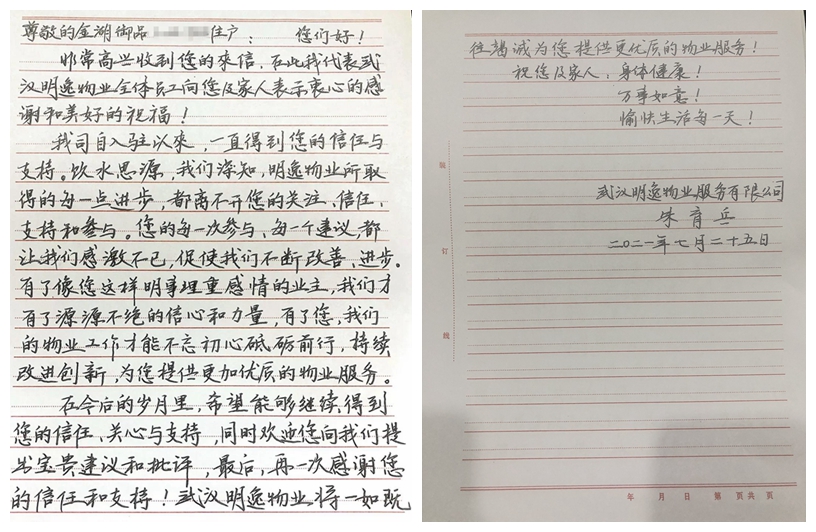 尊敬的金湖御品 住户: 您们好!
非常高兴收到您的来信,在此我代表武
汉明逸物业全体员工向您及家人表示衷心的感
谢和美好的祝福!
我司自入驻以来,一直得到您的信任与
支持。饮水思源,我们深知,明逸物业所取
得的每一点进步,都离不开您的关注、信任、
支持和参与。您的每一次参与、每一个建议,都
让我们感激不已,促使我们不断改善、进步。
有了像您这样明事理重感情的业主,我们才
有了源源不绝的信心和力量,有了您,我们
的物业工作才能不忘初心砥砺前行,持续
改进创新,为您提供更加优质的物业服务。
在今后的岁月里,希望能够继续得到
您的信任、关心与支持,同时欢迎您向我们提
出宝贵建议和批评,最后,再一次感谢您
的信任和支持!武汉明逸物业将一如既
往竭诚为您提供更优质的物业服务!
祝您及家人:身体健康!
万事如意!
愉快生活每一天!
武汉明逸物业服务有限公司
朱育兵
二〇二一年七月二十五日
装
订
线
年 月 日 第 页共 页